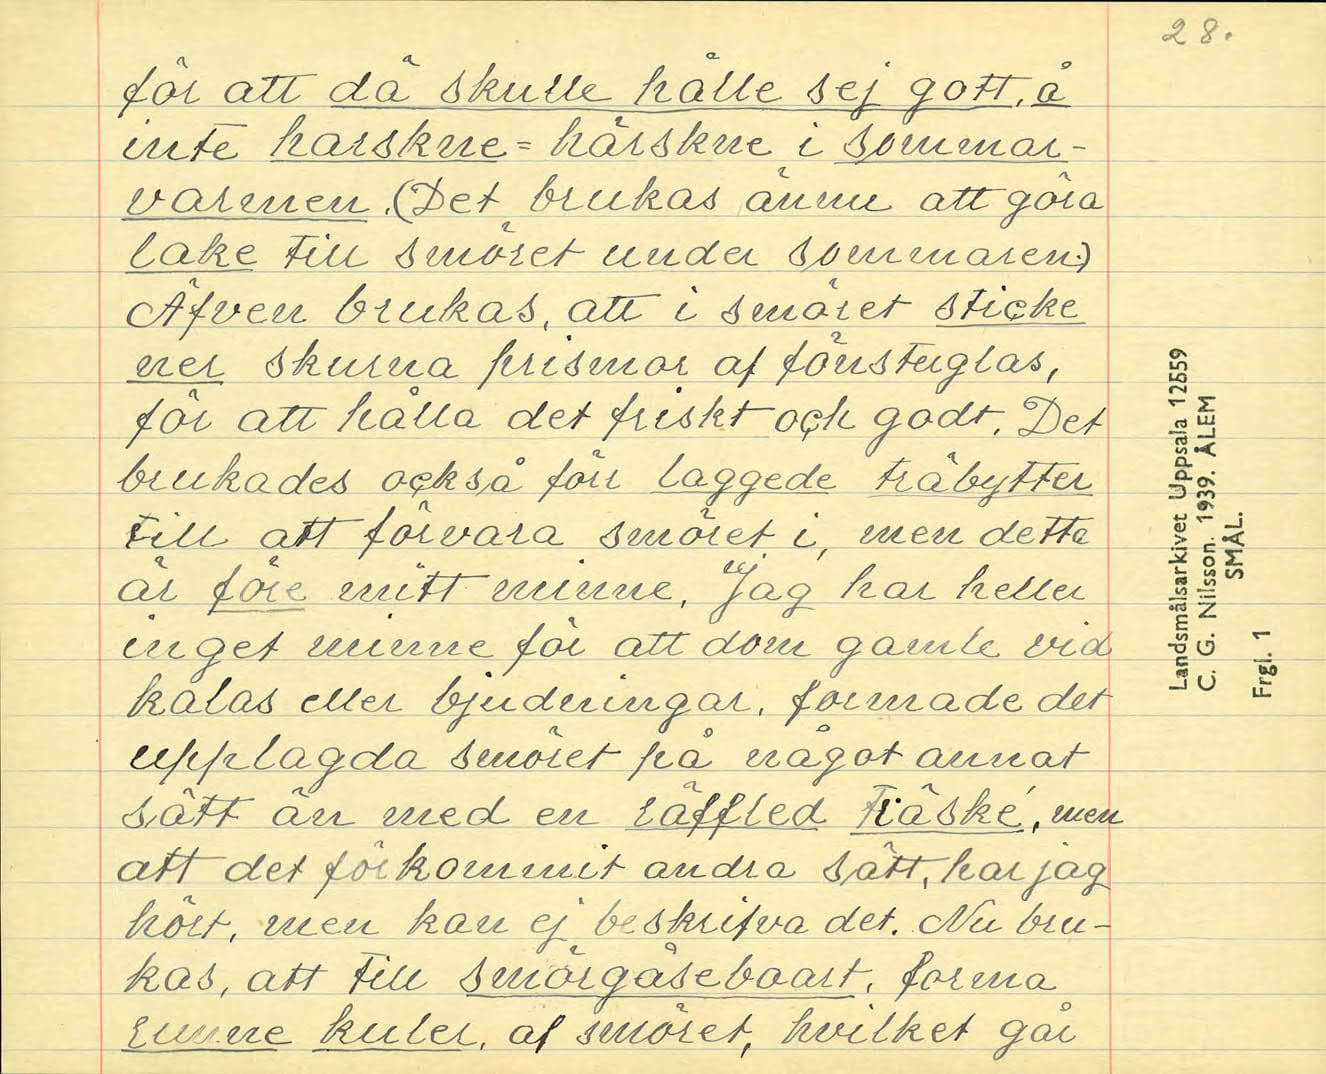 28.
för att dä skulle hålle sej gott, å
inte harskne = härskne i sommar-
varmen. (Det brukas ännu att göra
lake till smöret under sommaren.)
Äfven brukas, att i smöret sticke
ner skurna prismor af fönsterglas,
för att hålla det friskt och godt. Det
brukades också förr laggede träbytter
till att förvara smöret i, men detta
är före mitt minne. Jag har heller
inget minne för att dom gamle vid
kalas eller bjudningar, formade det
upplagda smöret på något annat
sätt än med en räffled träské, men
att det förkommit andra sätt, har jag
hört, men kan ej beskrifva det. Nu bru-
kas, att till smörgåseboart, forma
runne kuler, af smöret, hvilket går
Landsmålsarkivet Uppsala 12559
C. G. Nilsson. 1939. ÅLEM
SMÅL.
Frgl. 1